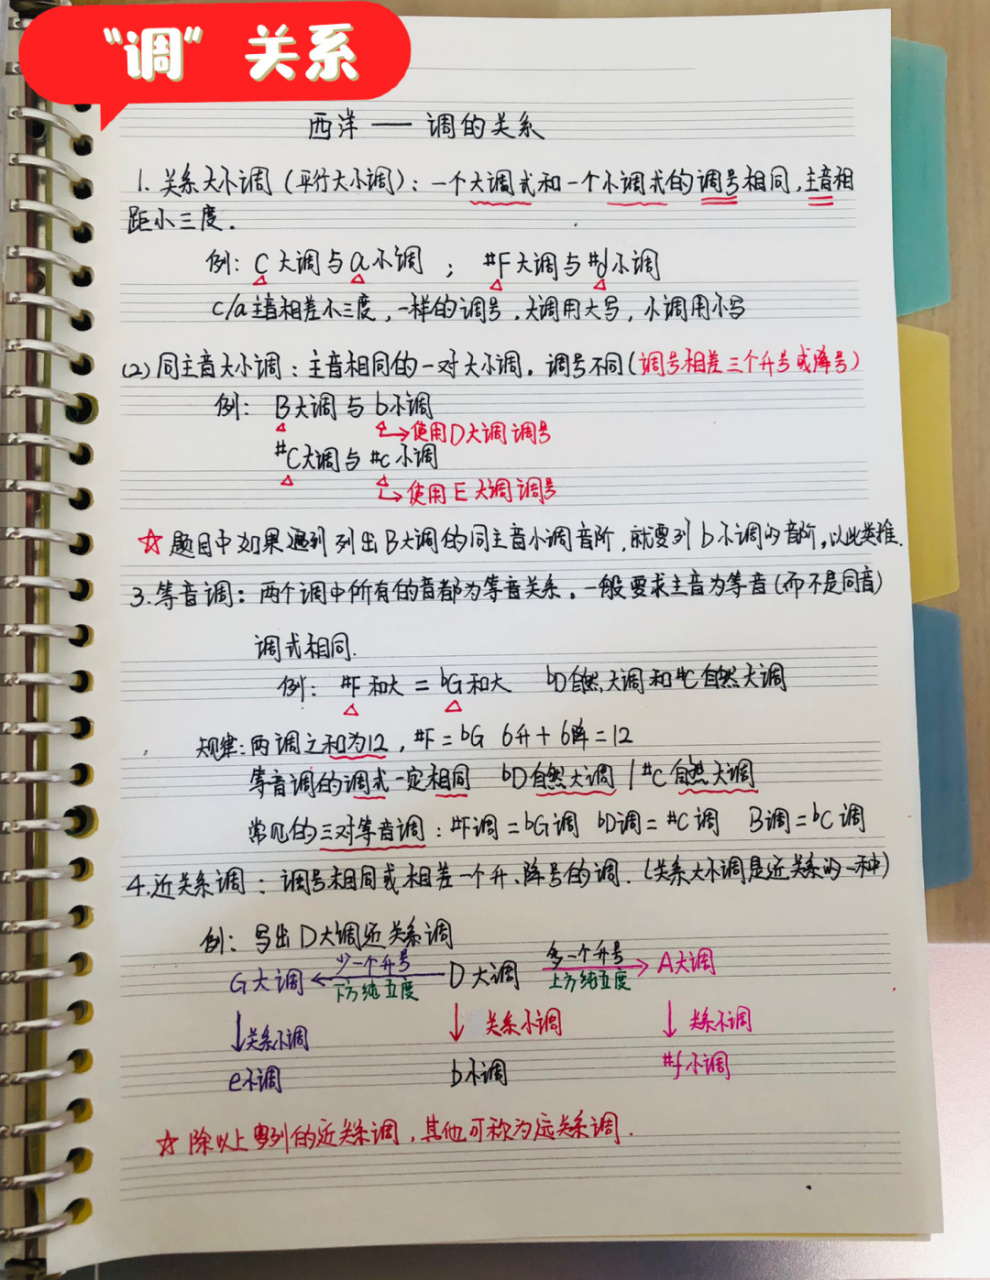 “调”关系
西洋——调的关系
1. 关系大小调(平行大小调):一个大调式和一个小调式的调号相同,主音相
距小三度.
例: C大调与a小调 ; #F大调与#d小调
C/a主音相差小三度,一样的调号.大调用大写,小调用小写
(2)同主音大小调:主音相同的一对大小调.调号不同(调号相差三个升号或降号)
例: B大调与b小调
使用D大调调号
#C大调与#c小调
使用E大调调号
☆题目中如果遇到列出B大调的同主音小调音阶,就要列b小调的音阶,以此类推.
3.等音调:两个调中所有的音都为等音关系.一般要求主音为等音(而不是同音)
调式相同.
例: #F和大=bG和大 bD自然大调和#C自然大调
规律:两调之和为12,#F=bG 6升+6降=12
等音调的调式一定相同 bD自然大调/#C自然大调
常见的三对等音调:#F调=bG调 bD调=#C调 B调=bC调
4.近关系调:调号相同或相差一个升、降号的调.(关系大小调是近关系的一种)
例: 写出D大调近关系调
G大调 少一个升号 D大调 多一个升号 A大调
下方纯五度 上方纯五度
关系小调 关系小调 关系小调
e小调 b小调 #f小调
☆除以上罗列的近关系调,其他可称为远关系调.